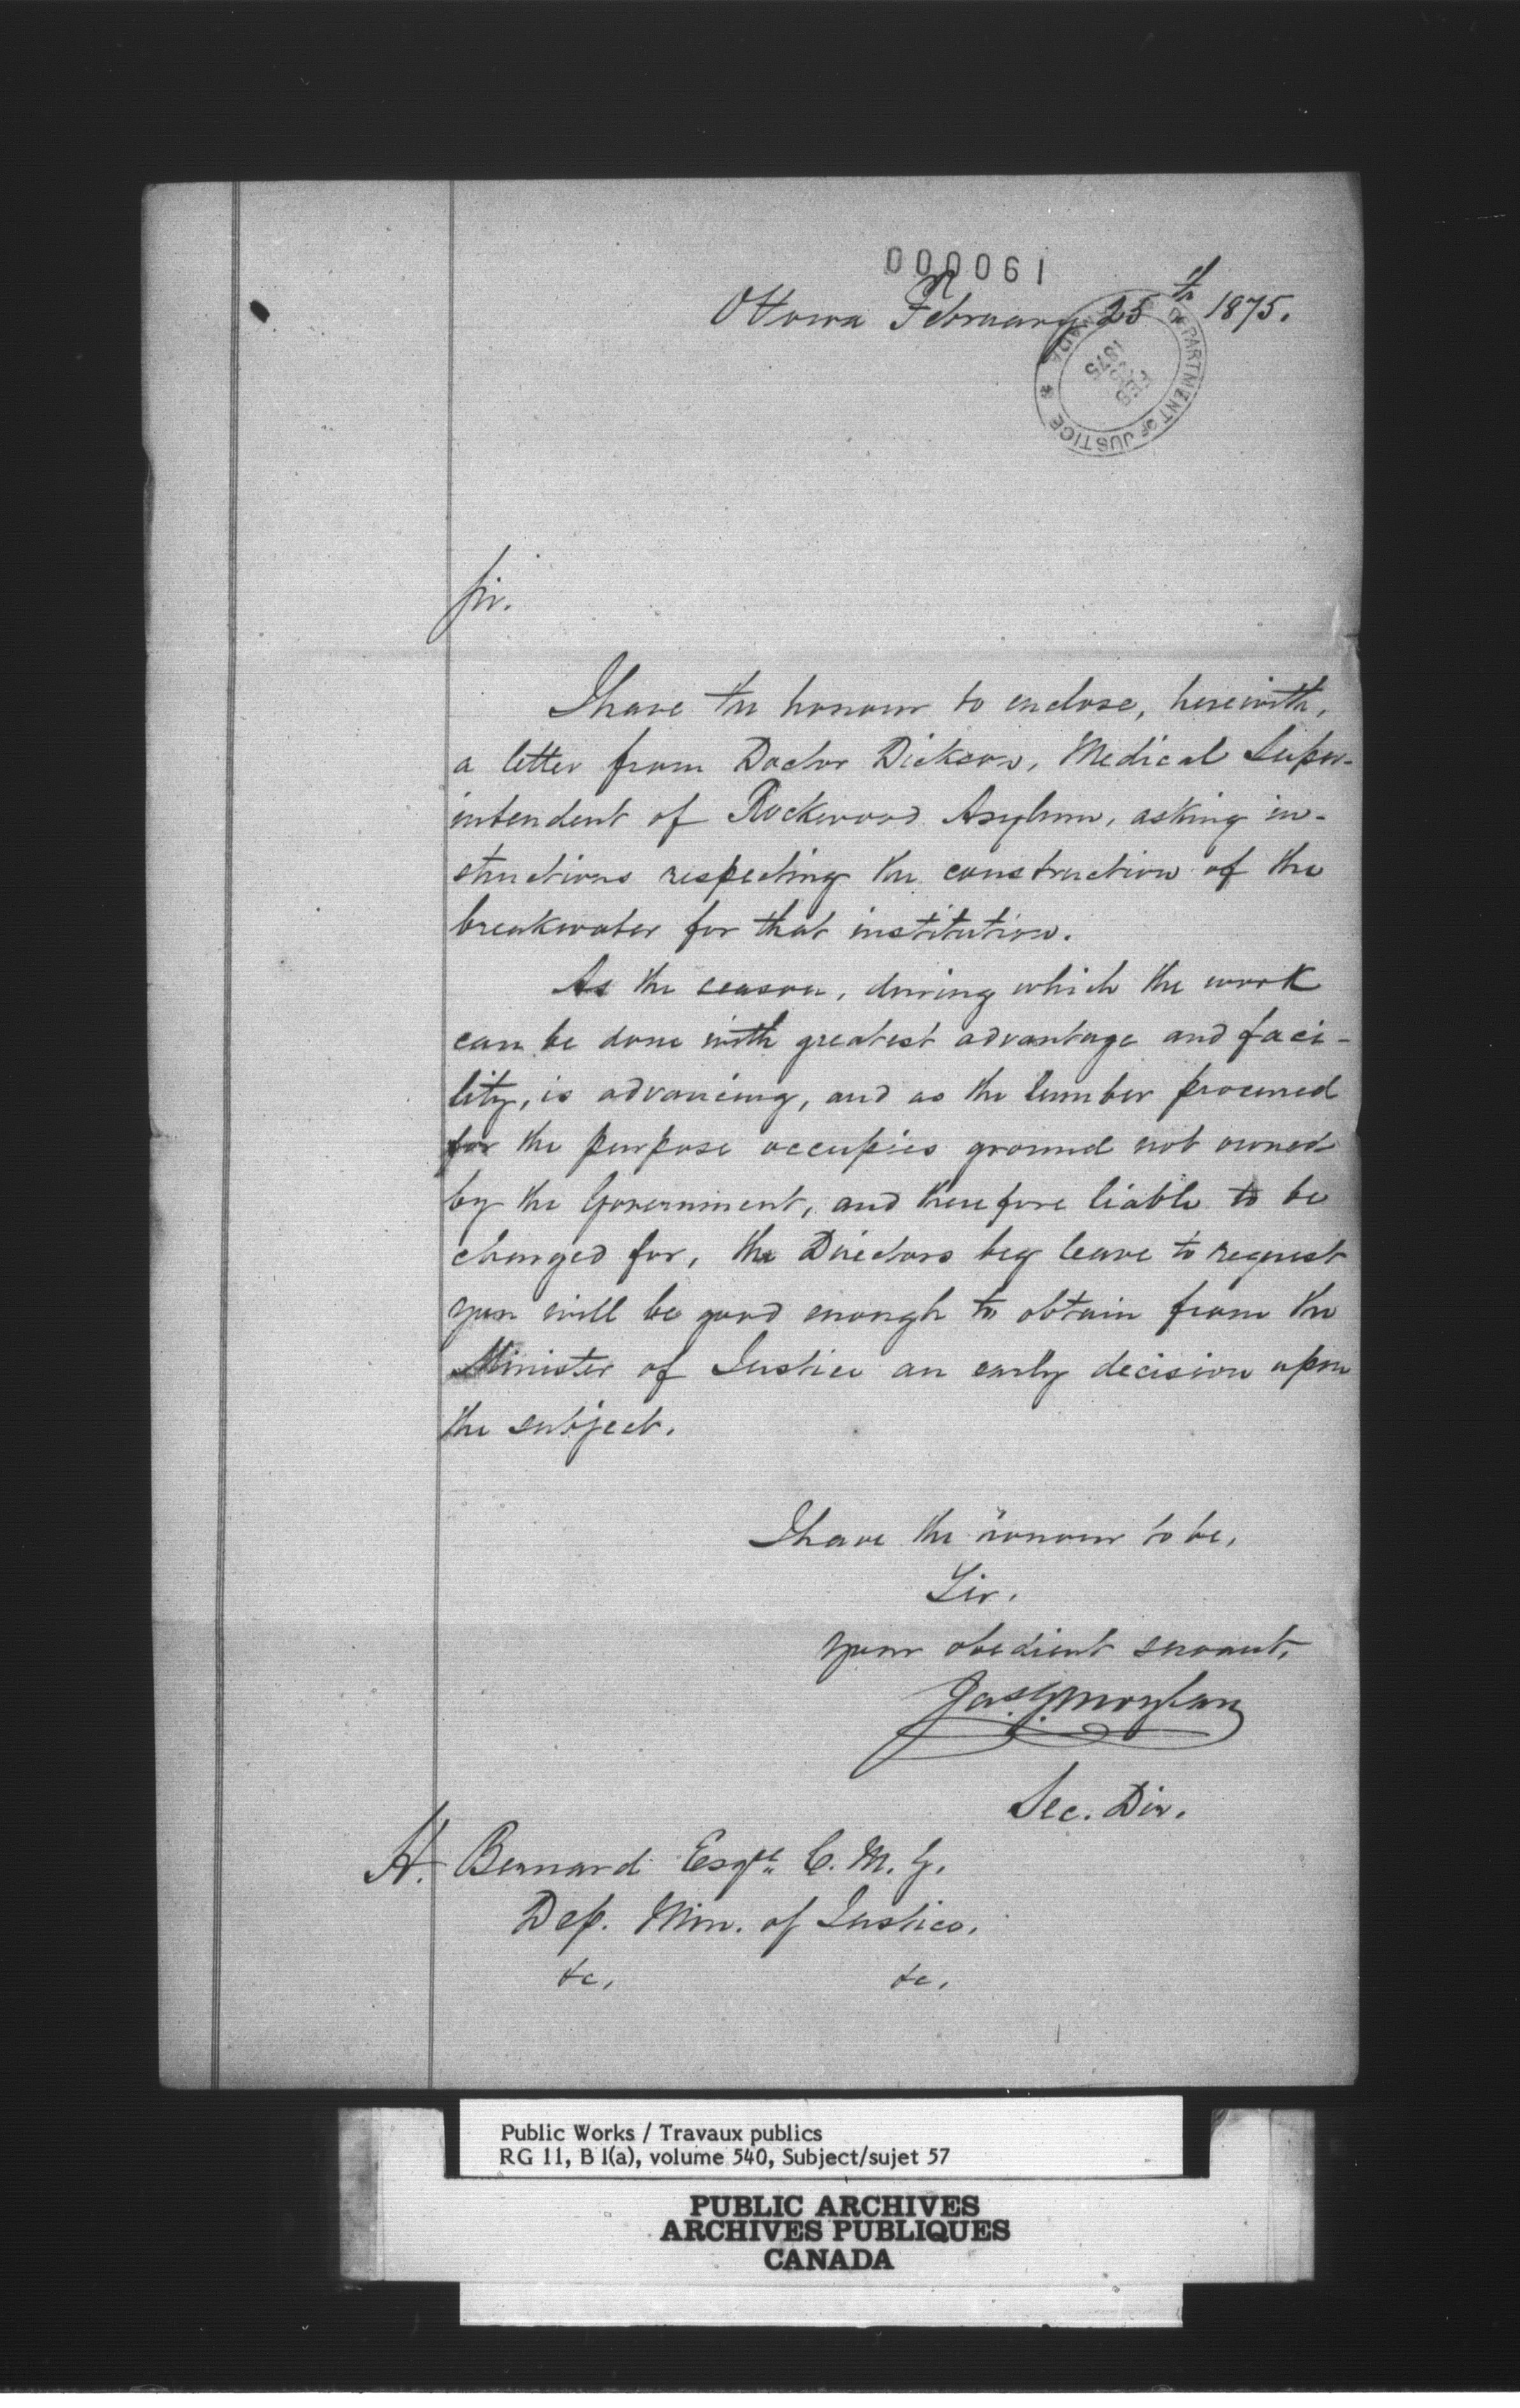 000061
Ottawa February 25th 1875.
DEPARTMENT OF JUSTICE * CANADA
FEB
1875
Sir.
I have the honour to enclose, herewith,
a letter from Doctor Dickson, Medical Super-
intendent of Rockwood Asylum, asking in-
structions respecting the construction of the
breakwater for that institution.
As the season, during which the work
can be done with greatest advantage and faci-
lity, is advancing, and as the lumber procured
for the purpose occupies ground not owned
by the Government, and therefore liable to be
charged for, the Directors beg leave to request
you will be good enough to obtain from the
Minister of Justice an early decision upon
the subject.
I have the honour to be,
Sir.
your obedient servant,
Jas. G. Moylan
Sec. Dir.
H. Bernard Esqre. C. M. G.
Dep. Min. of Justice.
&c. &c.
Public Works / Travaux publics
RG 11, B 1(a), volume 540, Subject/sujet 57
PUBLIC ARCHIVES
ARCHIVES PUBLIQUES
CANADA